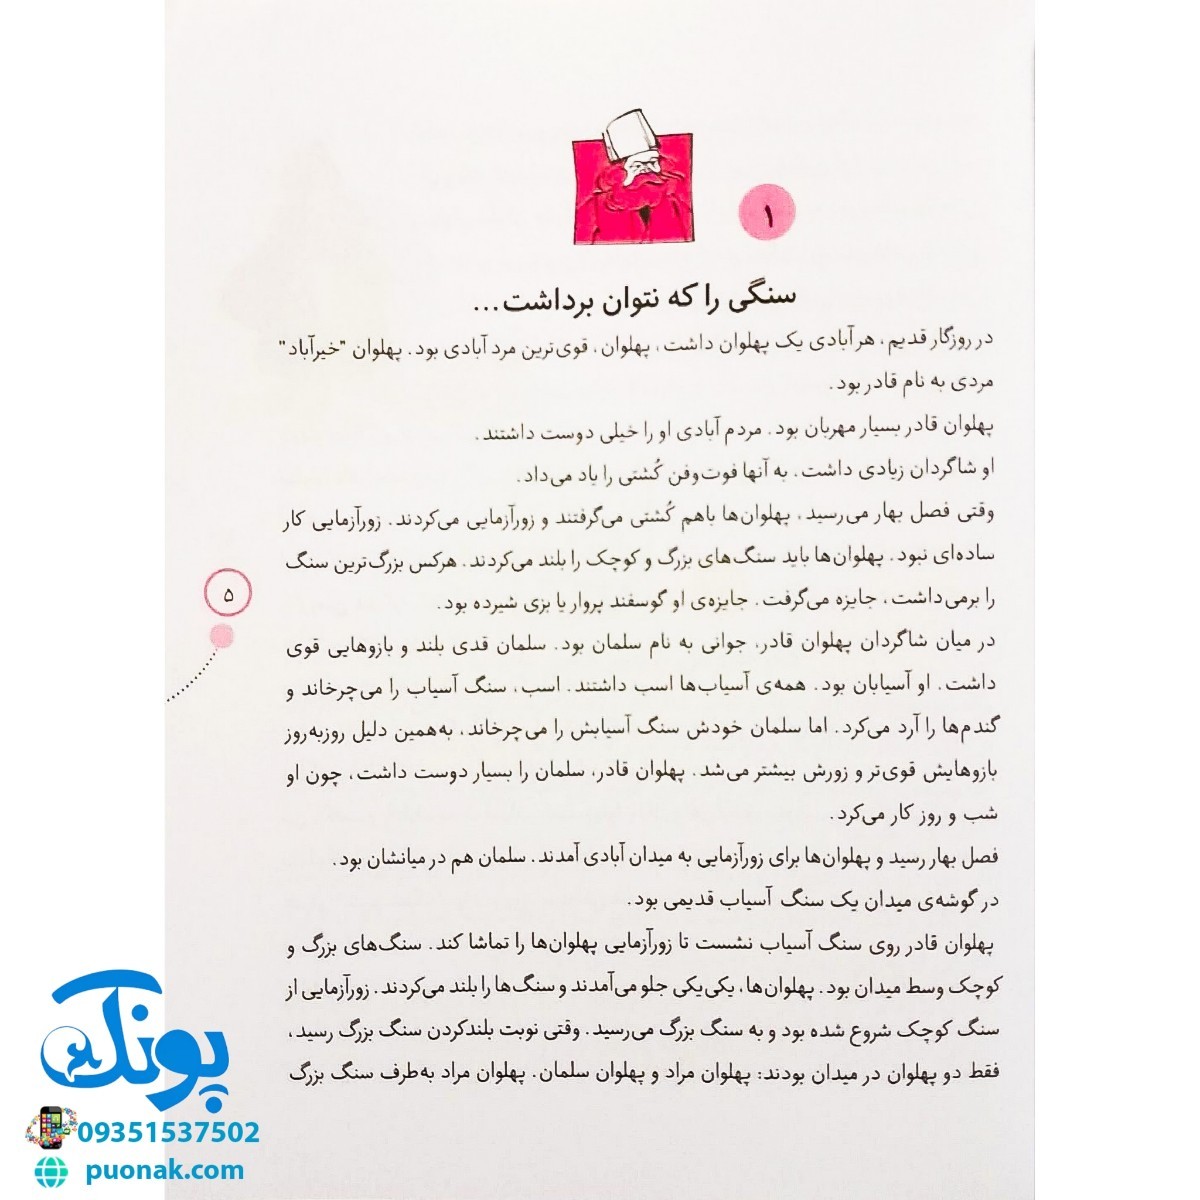 ۱
سنگی را که نتوان برداشت...
در روزگار قدیم، هر آبادی یک پهلوان داشت، پهلوان، قوی‌ترین مرد آبادی بود. پهلوان "خیرآباد"
مردی به نام قادر بود.
پهلوان قادر بسیار مهربان بود. مردم آبادی او را خیلی دوست داشتند.
او شاگردان زیادی داشت. به آنها فوت‌وفن کُشتی را یاد می‌داد.
وقتی فصل بهار می‌رسید، پهلوان‌ها باهم کُشتی می‌گرفتند و زورآزمایی می‌کردند. زورآزمایی کار
ساده‌ای نبود. پهلوان‌ها باید سنگ‌های بزرگ و کوچک را بلند می‌کردند. هرکس بزرگ‌ترین سنگ
را برمی‌داشت، جایزه می‌گرفت. جایزه‌ی او گوسفند پروار یا بزی شیرده بود.
در میان شاگردان پهلوان قادر، جوانی به نام سلمان بود. سلمان قدی بلند و بازوهایی قوی
داشت. او آسیابان بود. همه‌ی آسیاب‌ها اسب داشتند. اسب، سنگ آسیاب را می‌چرخاند و
گندم‌ها را آرد می‌کرد. اما سلمان خودش سنگ آسیابش را می‌چرخاند، به‌همین دلیل روزبه‌روز
بازوهایش قوی‌تر و زورش بیشتر می‌شد. پهلوان قادر، سلمان را بسیار دوست داشت، چون او
شب و روز کار می‌کرد.
فصل بهار رسید و پهلوان‌ها برای زورآزمایی به میدان آبادی آمدند. سلمان هم در میانشان بود.
در گوشه‌ی میدان یک سنگ آسیاب قدیمی بود.
پهلوان قادر روی سنگ آسیاب نشست تا زورآزمایی پهلوان‌ها را تماشا کند. سنگ‌های بزرگ و
کوچک وسط میدان بود. پهلوان‌ها، یکی‌یکی جلو می‌آمدند و سنگ‌ها را بلند می‌کردند. زورآزمایی از
سنگ کوچک شروع شده بود و به سنگ بزرگ می‌رسید. وقتی نوبت بلندکردن سنگ بزرگ رسید،
فقط دو پهلوان در میدان بودند: پهلوان مراد و پهلوان سلمان. پهلوان مراد به‌طرف سنگ بزرگ
۵
پونک
09351537502
puonak.com